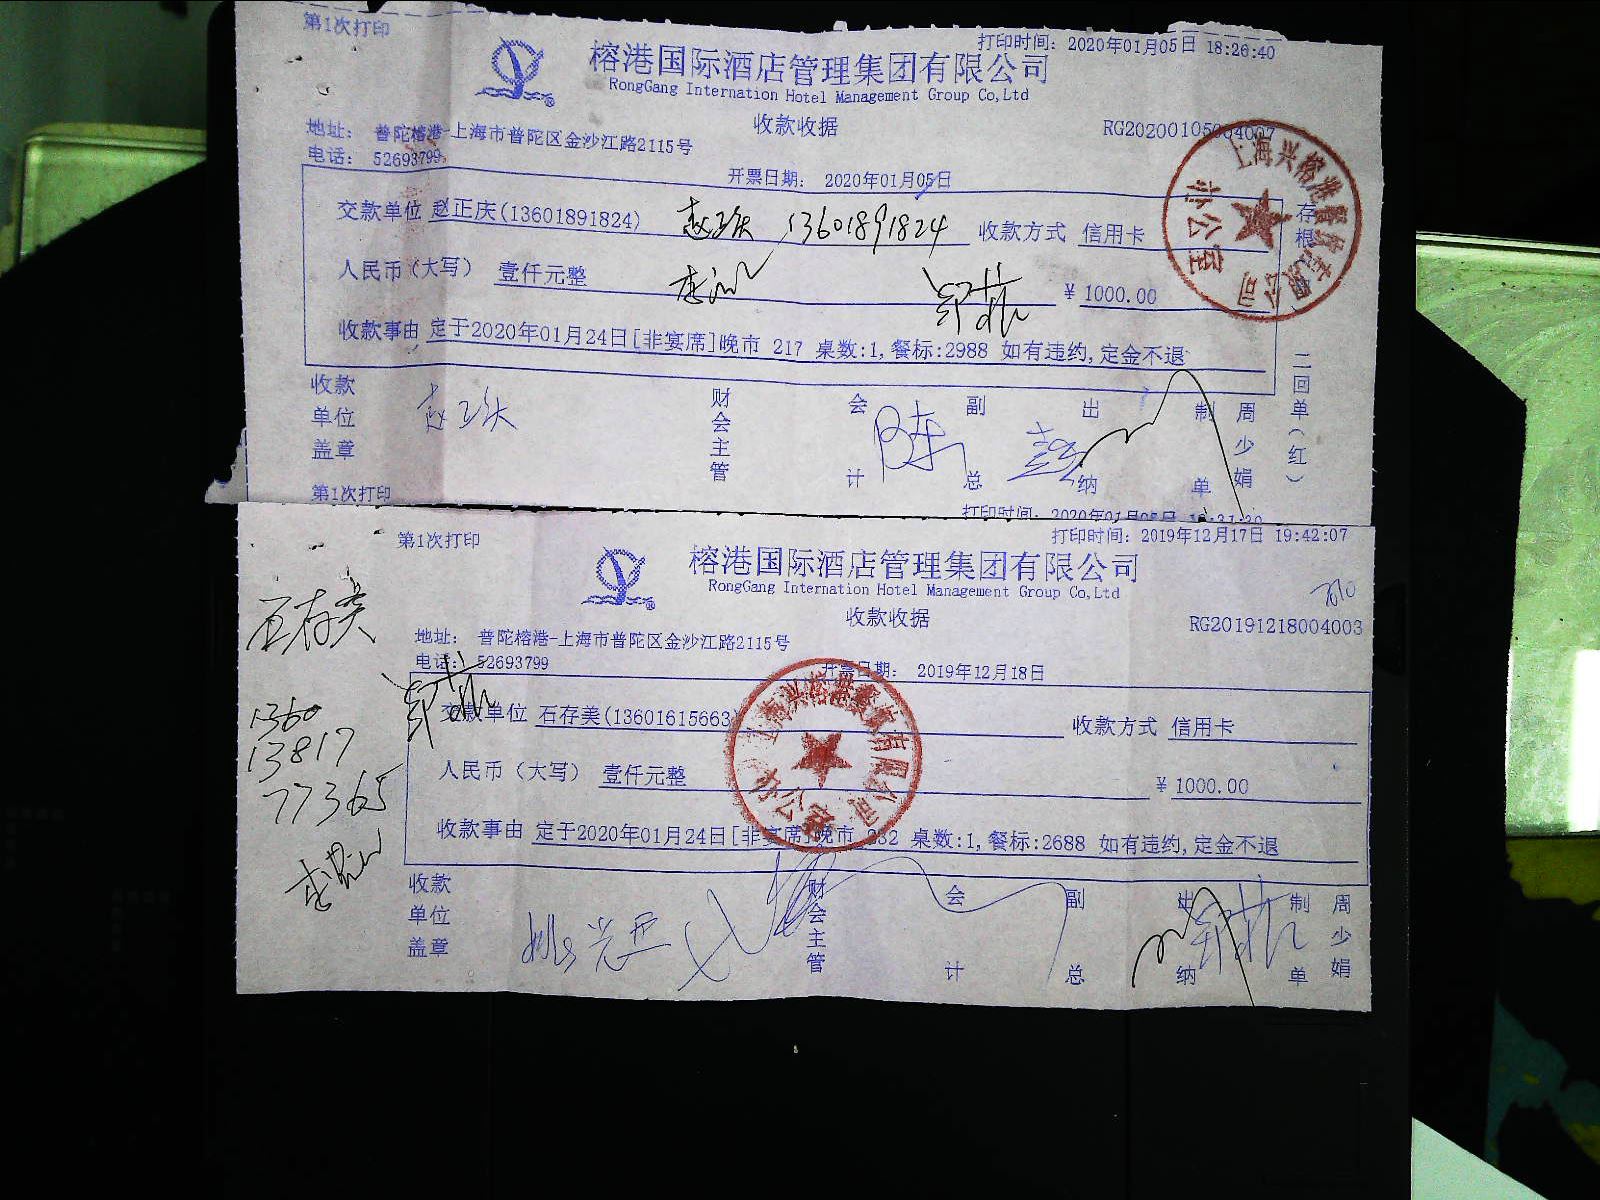 第1次打印
打印时间：2020年01月05日 18:26:40
榕港国际酒店管理集团有限公司
RongGang Internation Hotel Management Group Co,Ltd
收款收据
地址：普陀榕港-上海市普陀区金沙江路2115号
电话：52693799
开票日期：2020年01月05日
交款单位 赵正庆(13601891824) 13601891824 收款方式 信用卡
人民币（大写） 壹仟元整 ¥ 1000.00
收款事由 定于2020年01月24日[非宴席]晚市 217 桌数:1,餐标:2988 如有违约,定金不退
存根
二回单（红）
收款单位盖章 财会主管 会计 副总 出纳 制单 周少娟
第1次打印
第1次打印
打印时间：2019年12月17日 19:42:07
榕港国际酒店管理集团有限公司
RongGang Internation Hotel Management Group Co,Ltd
收款收据
RG20191218004003
地址：普陀榕港-上海市普陀区金沙江路2115号
电话：52693799
开票日期：2019年12月18日
石存美
1360
13817
77365
交款单位 石存美(13601615663) 收款方式 信用卡
人民币（大写） 壹仟元整 ¥ 1000.00
收款事由 定于2020年01月24日[非宴席]晚市 232 桌数:1,餐标:2688 如有违约,定金不退
收款单位盖章 财会主管 会计 副总 出纳 制单 周少娟